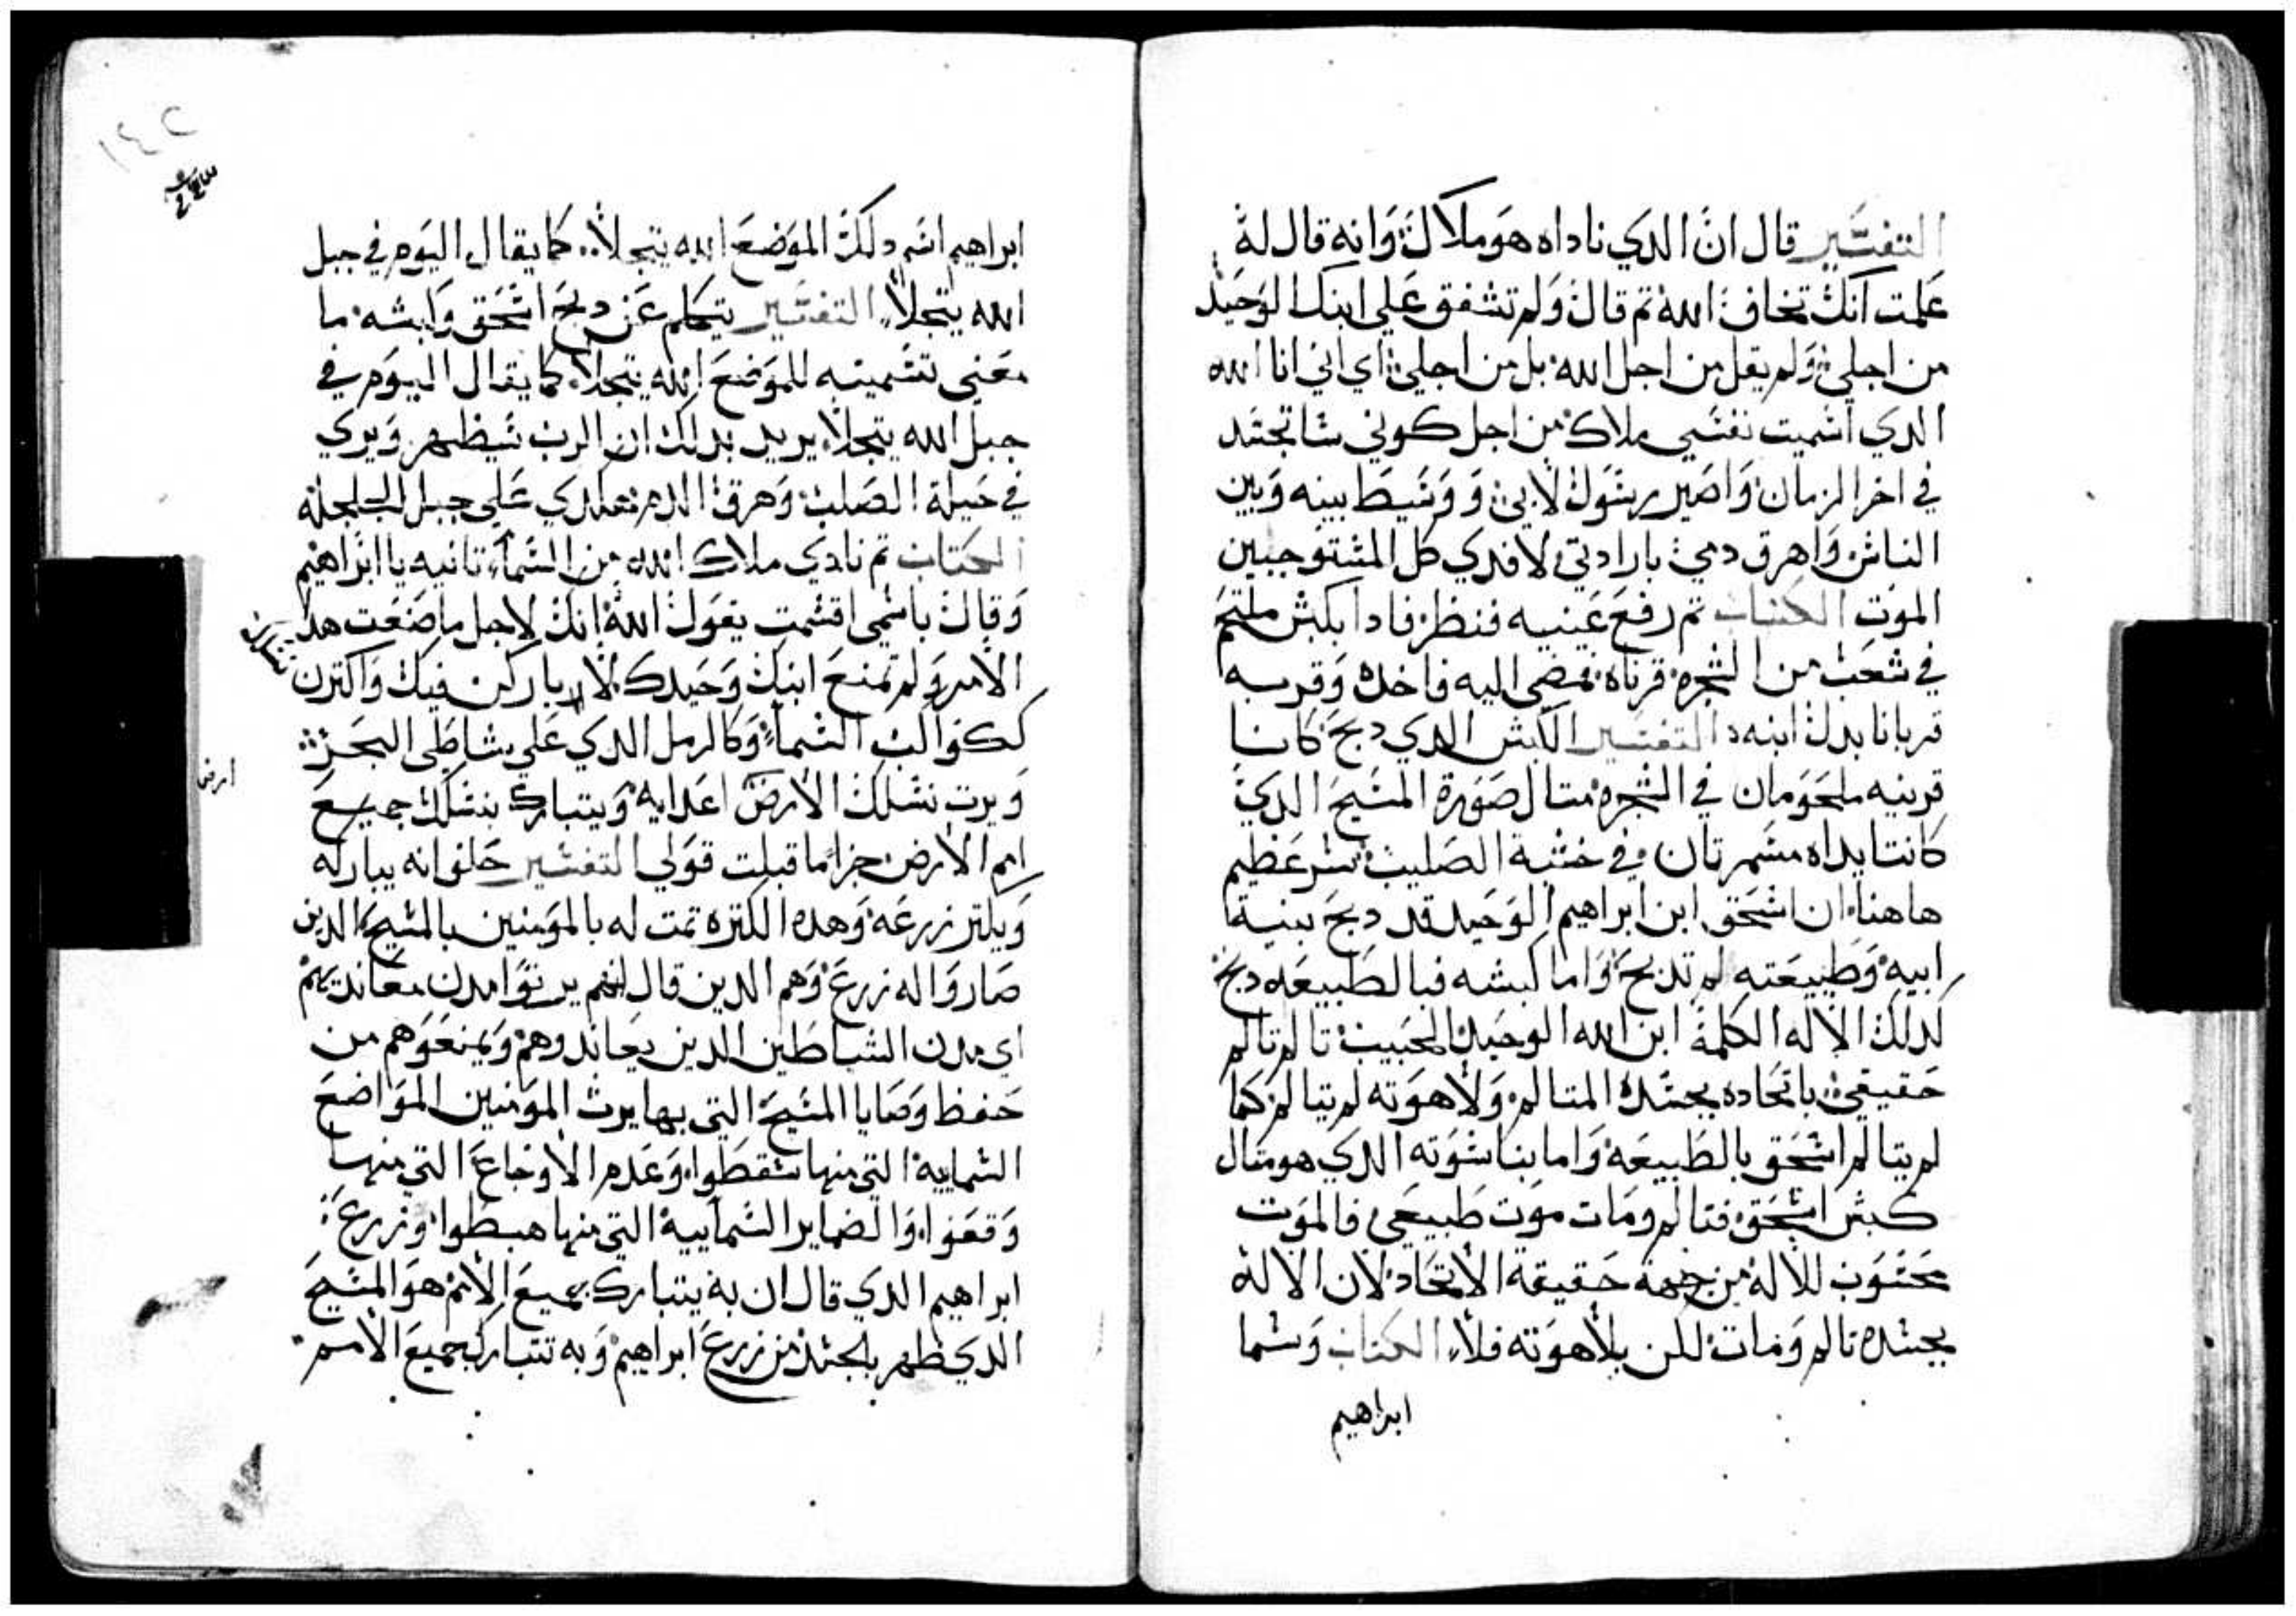 التفسير قال ان الدي ناداه هو ملاك وانه قال له
علمت انك تخاف الله تم قال ولم تشفق علي ابنك الوحيد
من اجلي ولم يقل من اجل الله بل من اجلي اي اني انا الله
الدي اسميت نفسي ملاك من اجل كوني ساتجسد
في اخر الزمان واصير رسول لابي ووسيط بينه وبين
الناس واهرق دمي بارادتي لافدي كل المستوجبين
الموت الكتاب تم رفع عينيه فنظر فادا بكبش ملتحم
في شعب من الشجره قرناه فمضي اليه فاخده وقربه
قربانا بدل ابنه التفسير الكبش الدي دبح كانا
قرنيه ملحومان في الشجره متال صورة المسيح الدي
كانتا يداه مسمرتان في خشبة الصليب سر عظيم
هاهنا ان اسحق ابن ابراهيم الوحيد قد دبح بنية
ابيه وطبيعته لم تدبح واما كبشه فبالطبيعه دبح
كدلك الاله الكلمة ابن الله الوحيد الحبيب تالم تالم
حقيقي باتحاده بجسده المتالم ولاهوته لم يتالم كما
لم يتالم اسحق بالطبيعه واما بناسوته الدي هو متال
كبش اسحق فتالم ومات موت طبيعي فالموت
محسوب للاله من جهة حقيقة الاتحاد لان الاله
بجسده تالم ومات لكن بلاهوته فلا الكتاب وسما
ابراهيم
١٤٢
ابراهيم اسم دلك الموضع الله يتجلا كما يقال اليوم في جبل
الله يتجلا التفسير يتكلم عن دبح اسحق وكبشه ما
معني تسميته للموضع الله يتجلا كما يقال اليوم في
جبل الله يتجلا يريد بدلك ان الرب سيظهر ويري
في حيلة الصلب وهرق الدم علي جبل الجلجلة
الكتاب تم نادي ملاك الله من السماء تانيه يا ابراهيم
وقال باسمي اقسمت يقول الله انك لاجل ما صنعت هدا
الامر ولم تمنع ابنك وحيدك لاباركن فيك واكترن
ككواكب السماء وكالرمل الدي علي شاطي البحر
ويرت نسلك الارض اعدايه ويتبارك بنسلك جميع
امم الارض جزا ما قبلت قولي التفسير حلف انه يباركه
ويكتر زرعه وهده الكتره تمت له بالمومنين بالمسيح الدين
صاروا له زرع وهم الدين قال انهم يرتوا مدن معانديهم
اي مدن الشياطين الدين يعاندوهم ويمنعوهم من
حفظ وصايا المسيح التي بها يرت المومنين المواضع
السمايية التي منها سقطوا وعدم الاوجاع التي منها
وقعوا والضماير السمايية التي منها هبطوا وزرع
ابراهيم الدي قال ان به يتبارك جميع الامم هو المسيح
الدي ظهر بالجسد من زرع ابراهيم وبه تتبارك جميع الامم
ارض